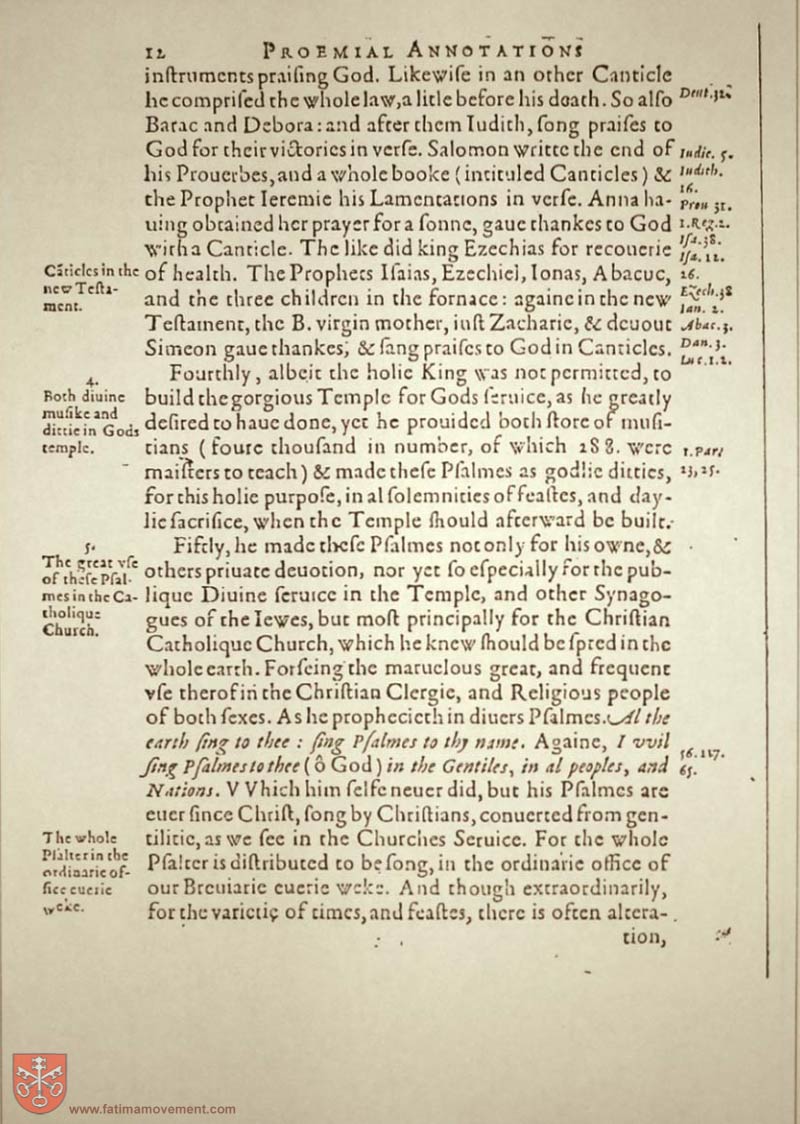 12 PROEMIAL ANNOTATIONS
inſtruments praiſing God. Likewiſe in an other Canticle
he compriſed the whole law, a litle before his death. So alſo
Barac and Debora: and after them Iudith, ſong praiſes to
God for their victories in verſe. Salomon writte the end of
his Prouerbes, and a whole booke (intituled Canticles) &
the Prophet Ieremie his Lamentations in verſe. Anna ha-
uing obtained her prayer for a ſonne, gaue thankes to God
with a Canticle. The like did king Ezechias for recouerie
of health. The Prophets Iſaias, Ezechiel, Ionas, Abacuc,
and the three children in the fornace: againe in the new
Teſtament, the B. virgin mother, iuſt Zacharie, & deuout
Simeon gaue thankes, & ſang praiſes to God in Canticles.
Fourthly, albeit the holie King was not permitted, to
build the gorgious Temple for Gods ſeruice, as he greatly
deſired to haue done, yet he prouided both ſtore of muſi-
tians (foure thouſand in number, of which 288. were
maiſters to teach) & made theſe Pſalmes as godlie ditties,
for this holie purpoſe, in al ſolemnities of feaſtes, and day-
lie ſacrifice, when the Temple ſhould afterward be built.
Fiftly, he made theſe Pſalmes not only for his owne, &
others priuate deuotion, nor yet ſo eſpecially for the pub-
lique Diuine ſeruice in the Temple, and other Synago-
gues of the Iewes, but moſt principally for the Chriſtian
Catholique Church, which he knew ſhould be ſpred in the
whole earth. Forſeing the maruelous great, and frequent
vſe therof in the Chriſtian Clergie, and Religious people
of both ſexes. As he prophecieth in diuers Pſalmes. Al the
earth ſing to thee: ſing Pſalmes to thy name. Againe, I vvil
ſing Pſalmes to thee (ô God) in the Gentiles, in al peoples, and
Nations. VVhich him ſelfe neuer did, but his Pſalmes are
euer ſince Chriſt, ſong by Chriſtians, conuerted from gen-
tilitie, as we ſee in the Churches Seruice. For the whole
Pſalter is diſtributed to be ſong, in the ordinarie office of
our Breuiarie euerie weke. And though extraordinarily,
for the varietie of times, and feaſtes, there is often altera-
tion,
Cāticles in the
new Teſta-
ment.
4.
Both diuine
muſike and
dittie in Gods
temple.
5.
The great vſe
of theſe Pſal-
mes in the Ca-
tholique
Church.
The whole
Pſalter in the
ordinarie of-
fice euerie
weke.
Deut. 32.
Iudic. 5.
Iudith.
16.
Prou 31.
1. Reg. 2.
Iſa. 38.
Iſa. 12.
26.
Ezech. 38
Ian. 2.
Abac. 3.
Dan. 3.
Luc. 1. 2.
1. Par.
23, 25.
56. 117.
65.
www.fatimamovement.com